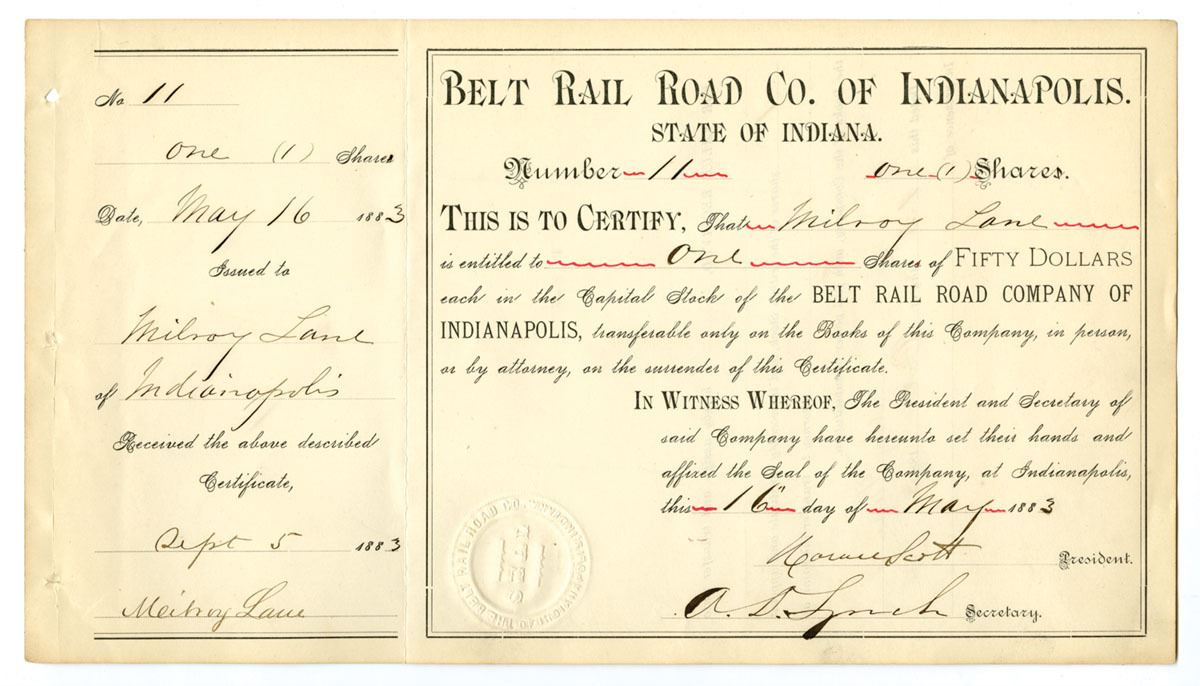 No 11
one (1) Shares
Date, May 16 1883
Issued to
Milroy Lane
of Indianapolis
Received the above described
Certificate,
Sept 5 1883
Milroy Lane
BELT RAIL ROAD CO. OF INDIANAPOLIS.
STATE OF INDIANA.
Number 11 one (1) Shares.
THIS IS TO CERTIFY, That Milroy Lane
is entitled to One Shares of FIFTY DOLLARS
each in the Capital Stock of the BELT RAIL ROAD COMPANY OF
INDIANAPOLIS, transferable only on the Books of this Company, in person,
or by attorney, on the surrender of this Certificate.
IN WITNESS WHEREOF, The President and Secretary of
said Company have hereunto set their hands and
affixed the Seal of the Company, at Indianapolis,
this 16" day of May 1883
Horace Scott President.
A. D. Lynch Secretary.
THE BELT RAIL ROAD CO.
SEAL